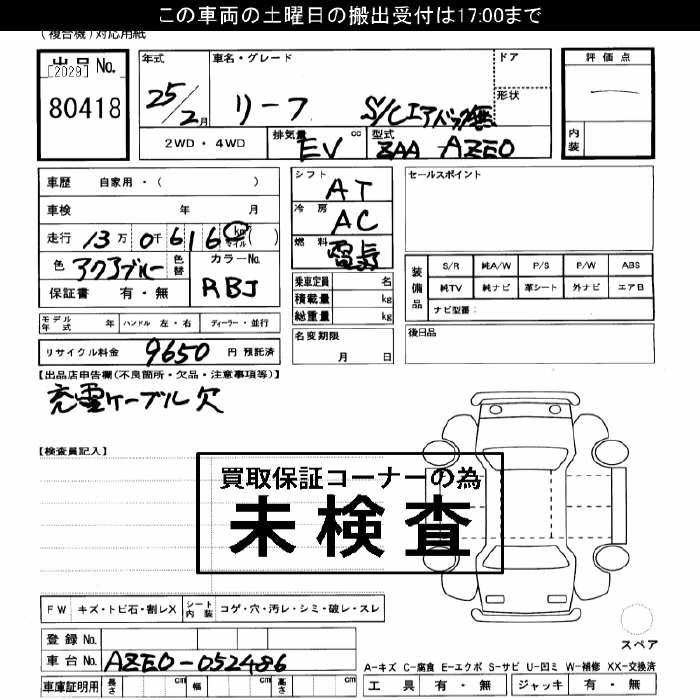 この車両の土曜日の搬出受付は17:00まで
(複合機)対応用紙
出品No.
[2029]
80418
年式
25/2月
車名・グレード
リーフ S/Cエアバック無
ドア
形状
2WD・4WD
排気量 EV cc
型式 ZAA-AZE0
評価点
―
内装
車歴 自家用・( )
車検 年 月
走行 13万0千616 km マイル ( )
色 アクアブルー 色替
カラーNo. RBJ
保証書 有・無
シフト AT
冷房 AC
燃料 電気
乗車定員 名
積載量 kg
総重量 kg
セールスポイント
装備品
S/R 純A/W P/S P/W ABS
純TV 純ナビ 革シート 外ナビ エアB
ナビ型番:
モデル年式 年 ハンドル 左・右 ディーラー・並行
リサイクル料金 9650 円 預託済
名変期限 月 日
後日品
【出品店申告欄(不良箇所・欠品・注意事項等)】
充電ケーブル欠
【検査員記入】
買取保証コーナーの為
未検査
FW キズ・トビ石・割レX シート内装 コゲ・穴・汚レ・シミ・破レ・スレ
登録No.
車台No. AZE0-052486
車庫証明用 長さ cm 幅 cm 高さ cm
スペア
A-キズ C-腐食 E-エクボ S-サビ U-凹ミ W-補修 XX-交換済
工具 有・無 ジャッキ 有・無